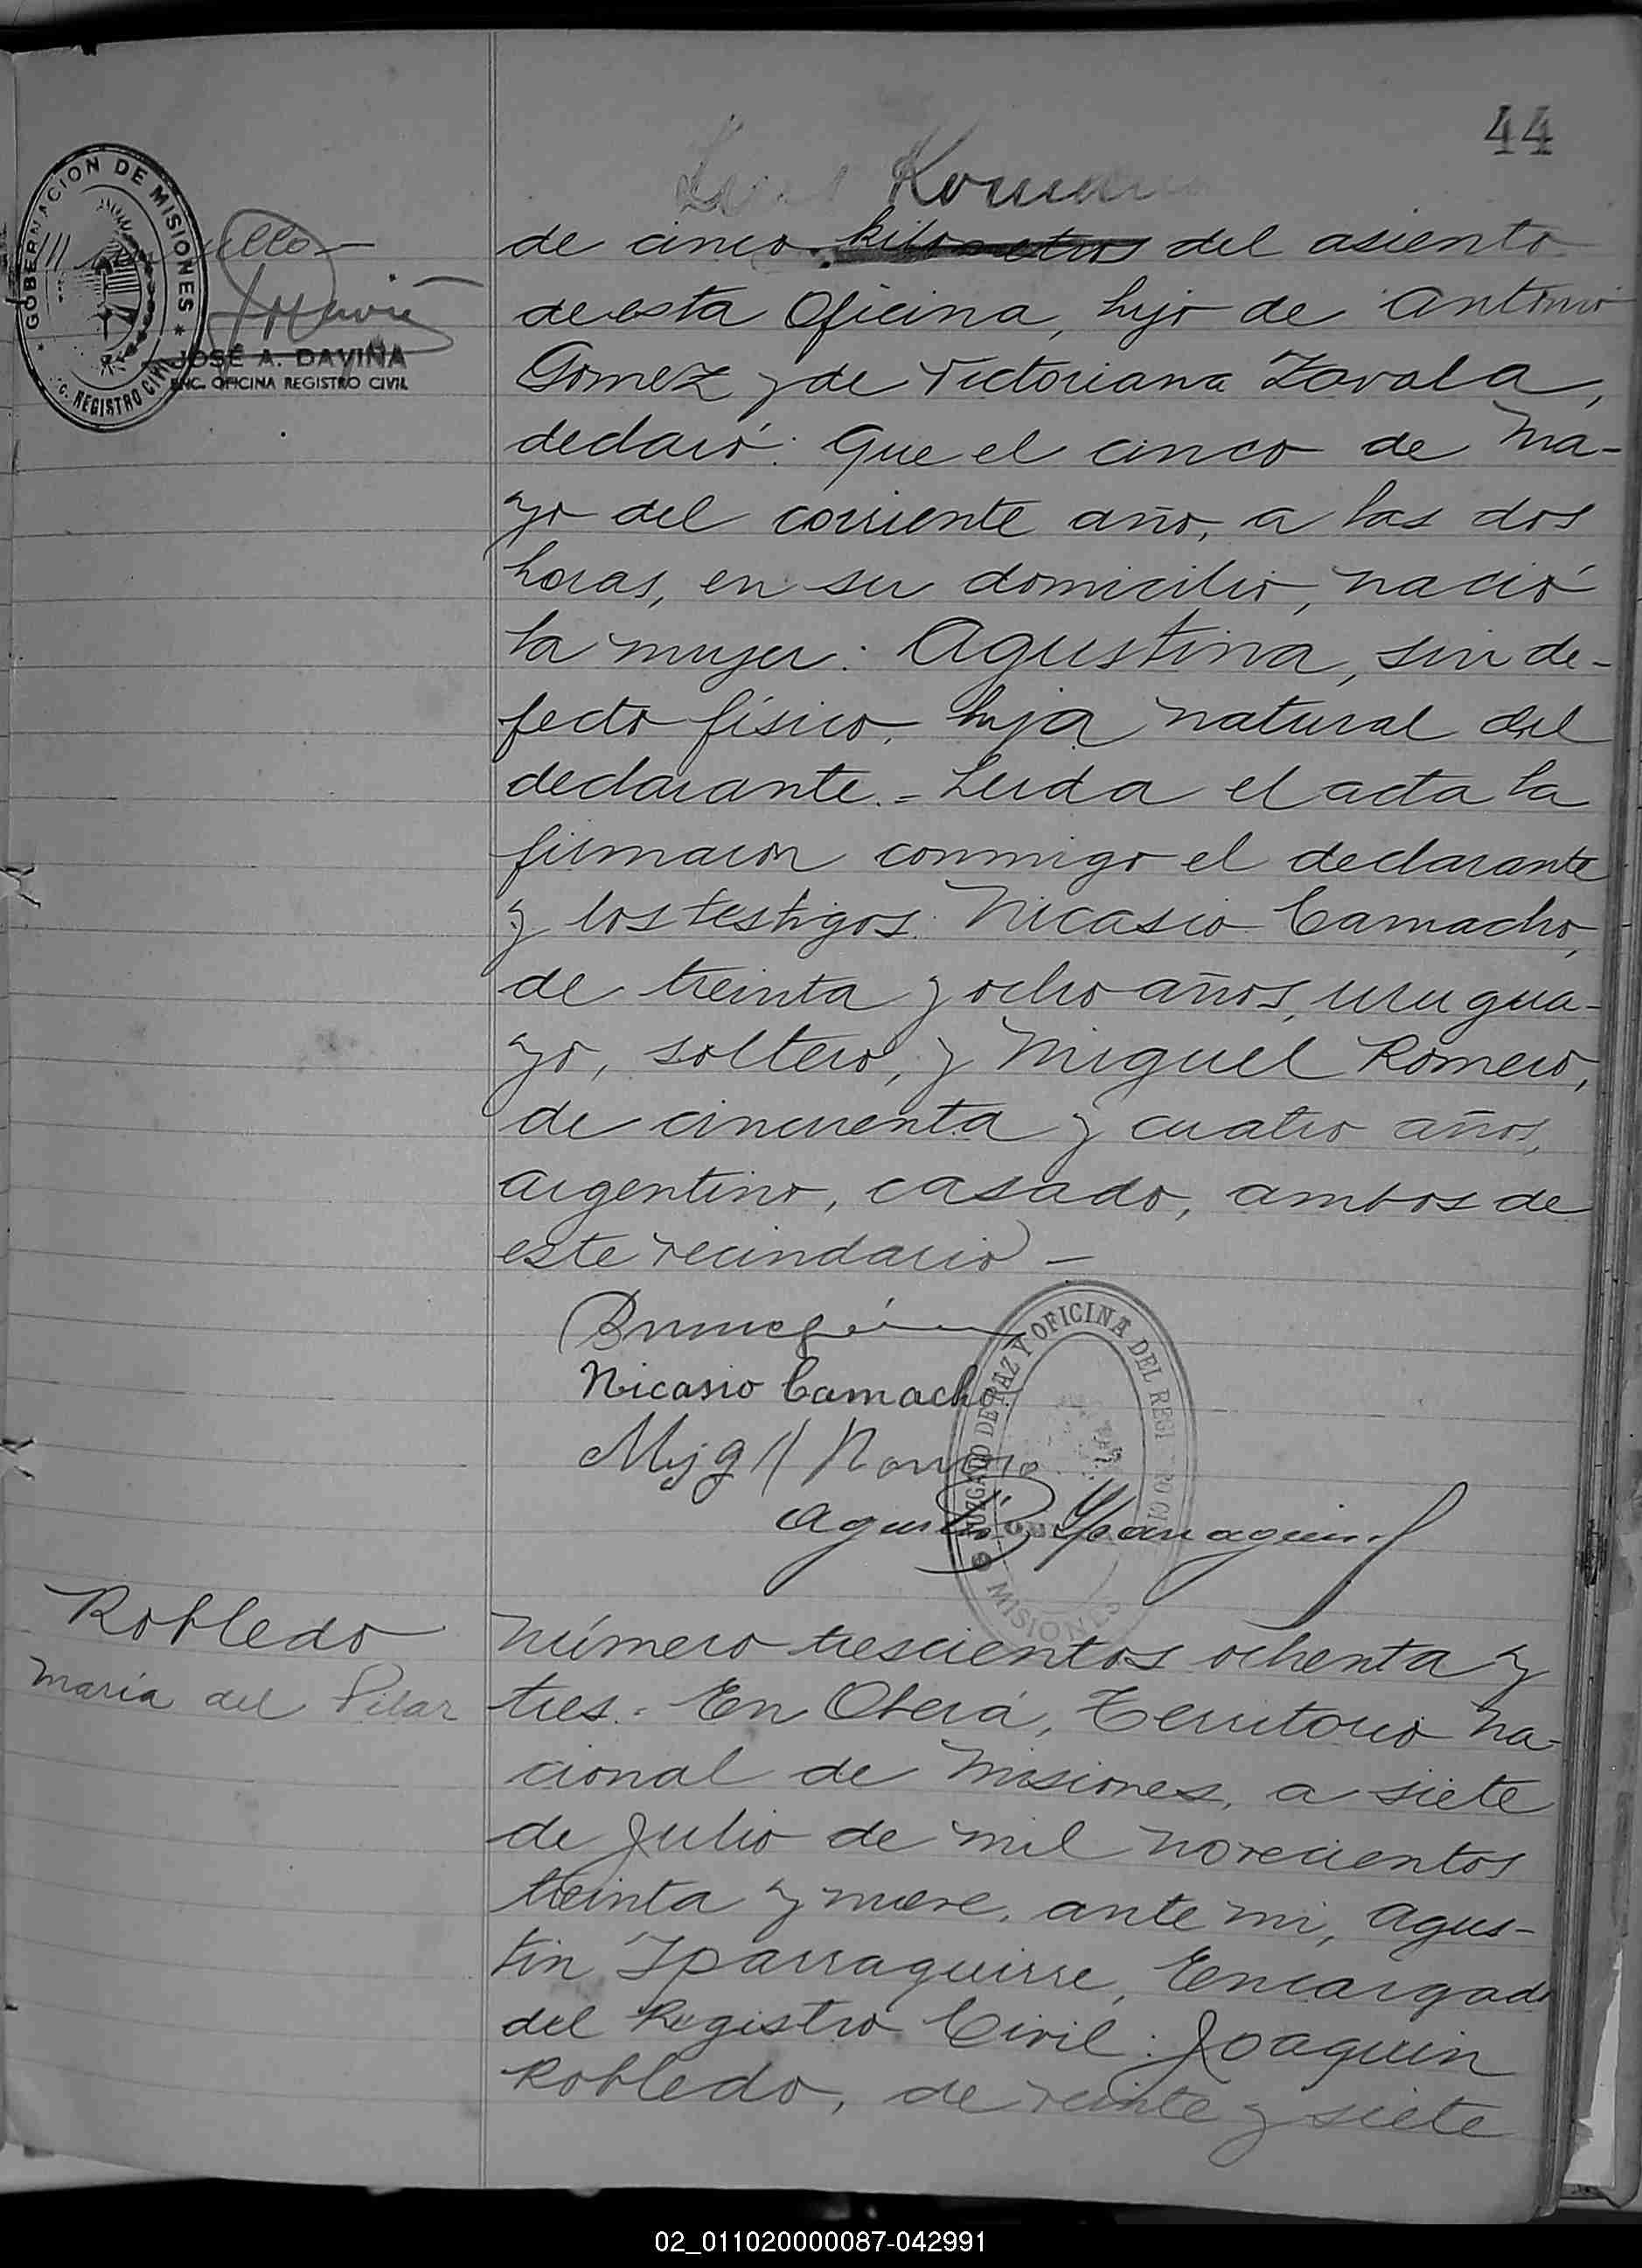 44
GOBERNACION DE MISIONES
C. REGISTRO CIVIL
JOSÉ A. DAVIÑA
ENC. OFICINA REGISTRO CIVIL
de cinco kilometros del asiento
de esta Oficina, hijo de Antonio
Gomez y de Victoriana Zavala,
declaró: Que el cinco de Ma-
yo del corriente año, a las dos
horas, en su domicilio, nació
la mujer: Agustina, sin de-
fecto físico, hija natural del
declarante.= Leida el acta la
firmaron conmigo el declarante
y los testigos: Nicasio Camacho,
de treinta y ocho años, urugua-
yo, soltero, y Miguel Romero,
de cincuenta y cuatro años,
argentino, casado, ambos de
este vecindario –
Nicasio Camacho
JUZGADO DE PAZ Y OFICINA DEL REGISTRO CIVIL
MISIONES
Robledo
Maria del Pilar
Número trescientos ochenta y
tres.= En Oberá, Territorio Na-
cional de Misiones, a siete
de Julio de mil novecientos
treinta y nueve, ante mi, Agus-
tin Iparraguirre, Encargado
del Registro Civil: Joaquin
Robledo, de veinte y siete
02_011020000087-042991